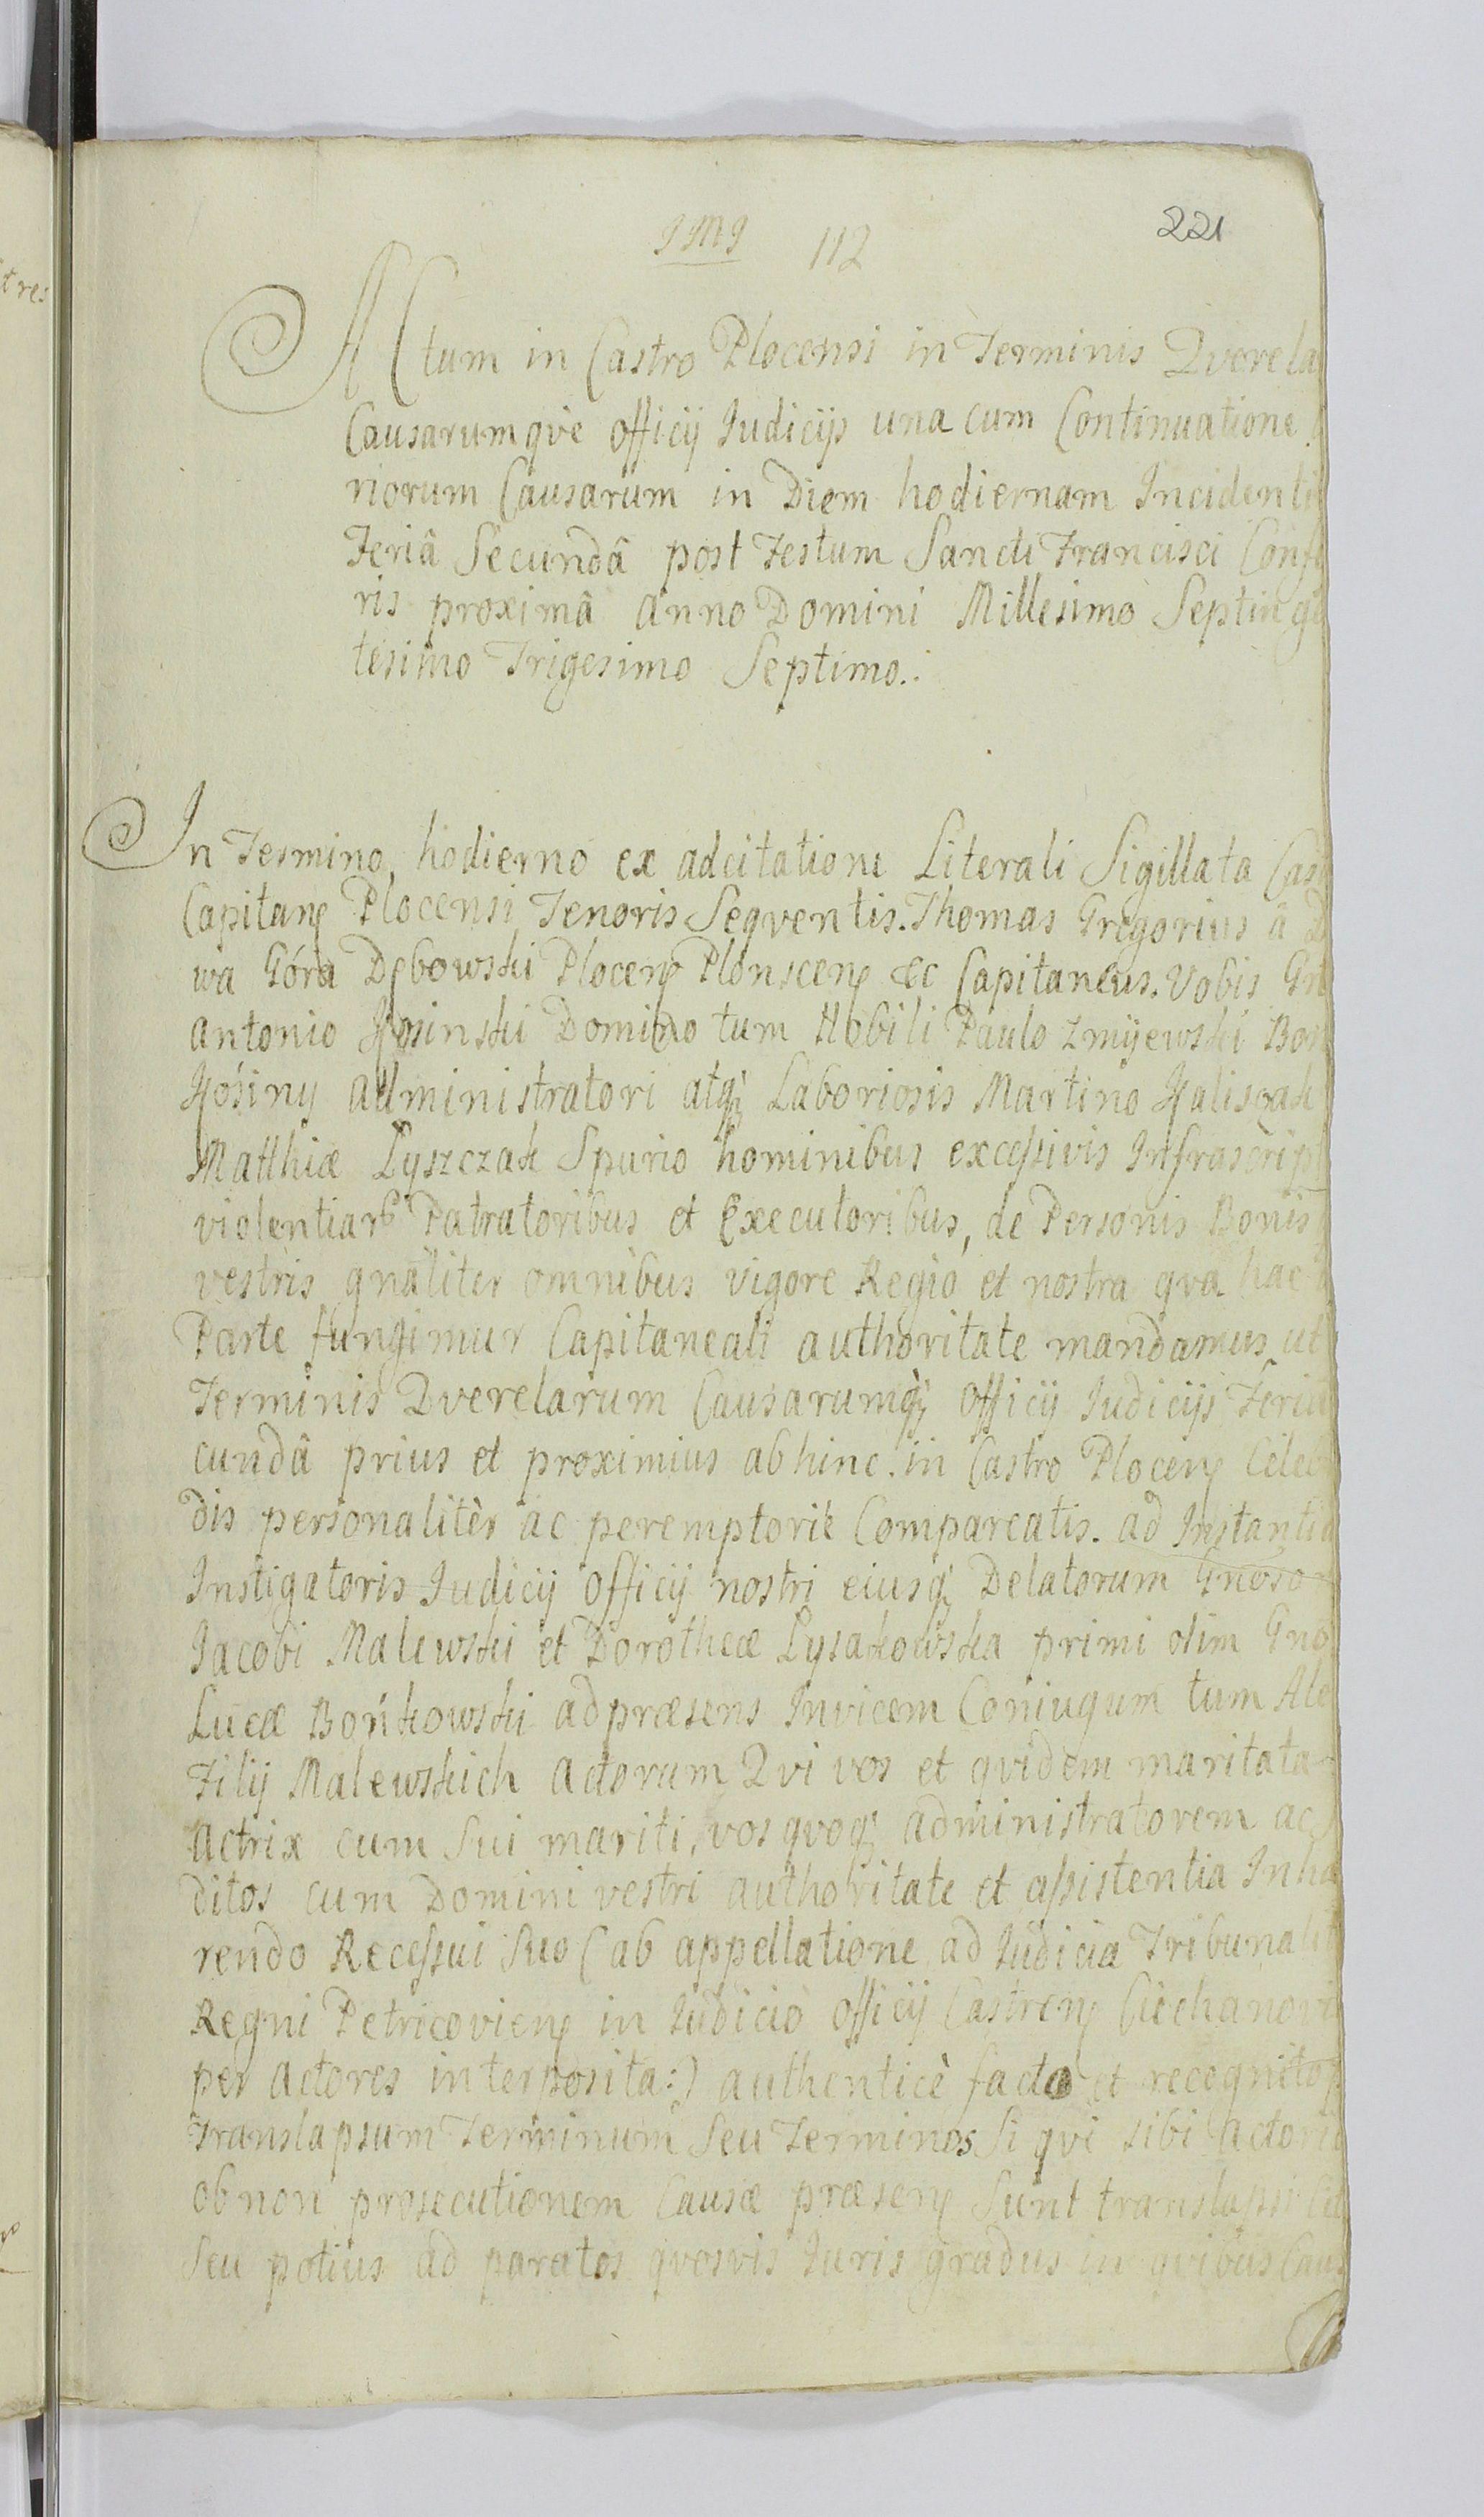 IMI 112
221
Actum in Castro Plocensi in Terminis Qverela
Causarumqve Officij Iudicijs una cum Continuatione
riorum Causarum in Diem hodiernam Incidenti
Feriâ Secundâ post Festum Sancti Francisci Confe
ris proximâ Anno Domini Millesimo Septinge
tesimo Trigesimo Septimo.
In Termino hodierno ex adcitatione Literali Sigillata Cas
Capitane Plocensi Tenoris Seqventis. Thomas Gregorius â D
wa Góra Dębowski Plocen Plonscen &c Capitaneus. Vobis Gn
Antonio Kosinski Domino tum Nobili Paulo Zmijewski Bon
Kósiny Administratori atq; Laboriosis Martino Kaliszak
Matthiæ Łyszczak Spurio hominibus excessivis Infrascript
violentiar Patratoribus et Executoribus, de Personis Bonis
vestris gnaliter omnibus vigore Regio et nostra qva hac
Parte fungimur Capitaneali authoritate mandamus ut
Terminis Qverelarum Causarumq; Officij Iudicijs Feria
cundâ prius et proximius abhinc in Castro Plocen Celeb
dis personalitèr ac peremptoriè Compareatis. ad Instantia
Instigatoris Iudicij Officij nostri eiusq; Delatorum Gnoso
Iacobi Malewski et Dorotheæ Łysakowska primi olim Gno
Lucæ Bońkowski ad præsens Invicem Coniugum tum Ale
Filij Malewskich Actorum Qvi vos et qvidem maritata
Actrix cum Sui mariti, vos qvoq; administratorem ac
ditos cum Domini vestri authoritate et assistentia Inhæ
rendo Recessui Suo (ab appellatione ad Iudicia Tribunalit
Regni Petricovien in Iudicio Officij Castren Ciechanovi
per Actores interposita:) authenticè facto et recognito
Translapsum Terminum Seu Terminos Si qvi sibi Actori
ob non prosecutionem Causæ præsen Sunt translapsi Cit
Seu potius ad paratos qvosvis Iuris gradus in qvibus Caus